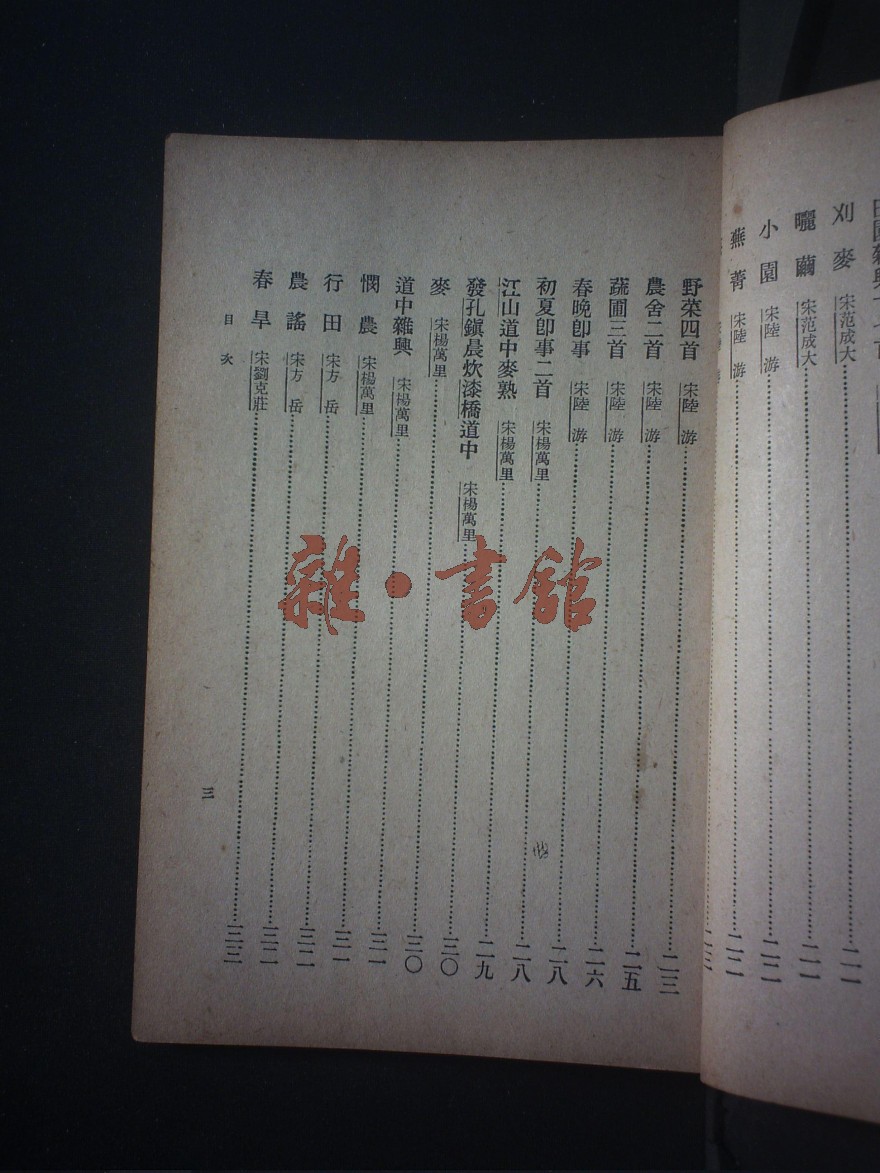 刈麥 宋范成大……二一
曬繭 宋范成大……二一
小園 宋陸游……二二
蕪菁 宋陸游……二二
野菜四首 宋陸游……二三
農舍二首 宋陸游……二五
蔬圃三首 宋陸游……二六
春晚卽事 宋陸游……二八
初夏卽事二首 宋楊萬里……二八
江山道中麥熟 宋楊萬里……二九
發孔鎭晨炊漆橋道中 宋楊萬里……三〇
麥 宋楊萬里……三〇
道中雜興 宋楊萬里……三一
憫農 宋楊萬里……三一
行田 宋方岳……三二
農謠 宋方岳……三二
春旱 宋劉克莊……三三
目次
三
雜·書館